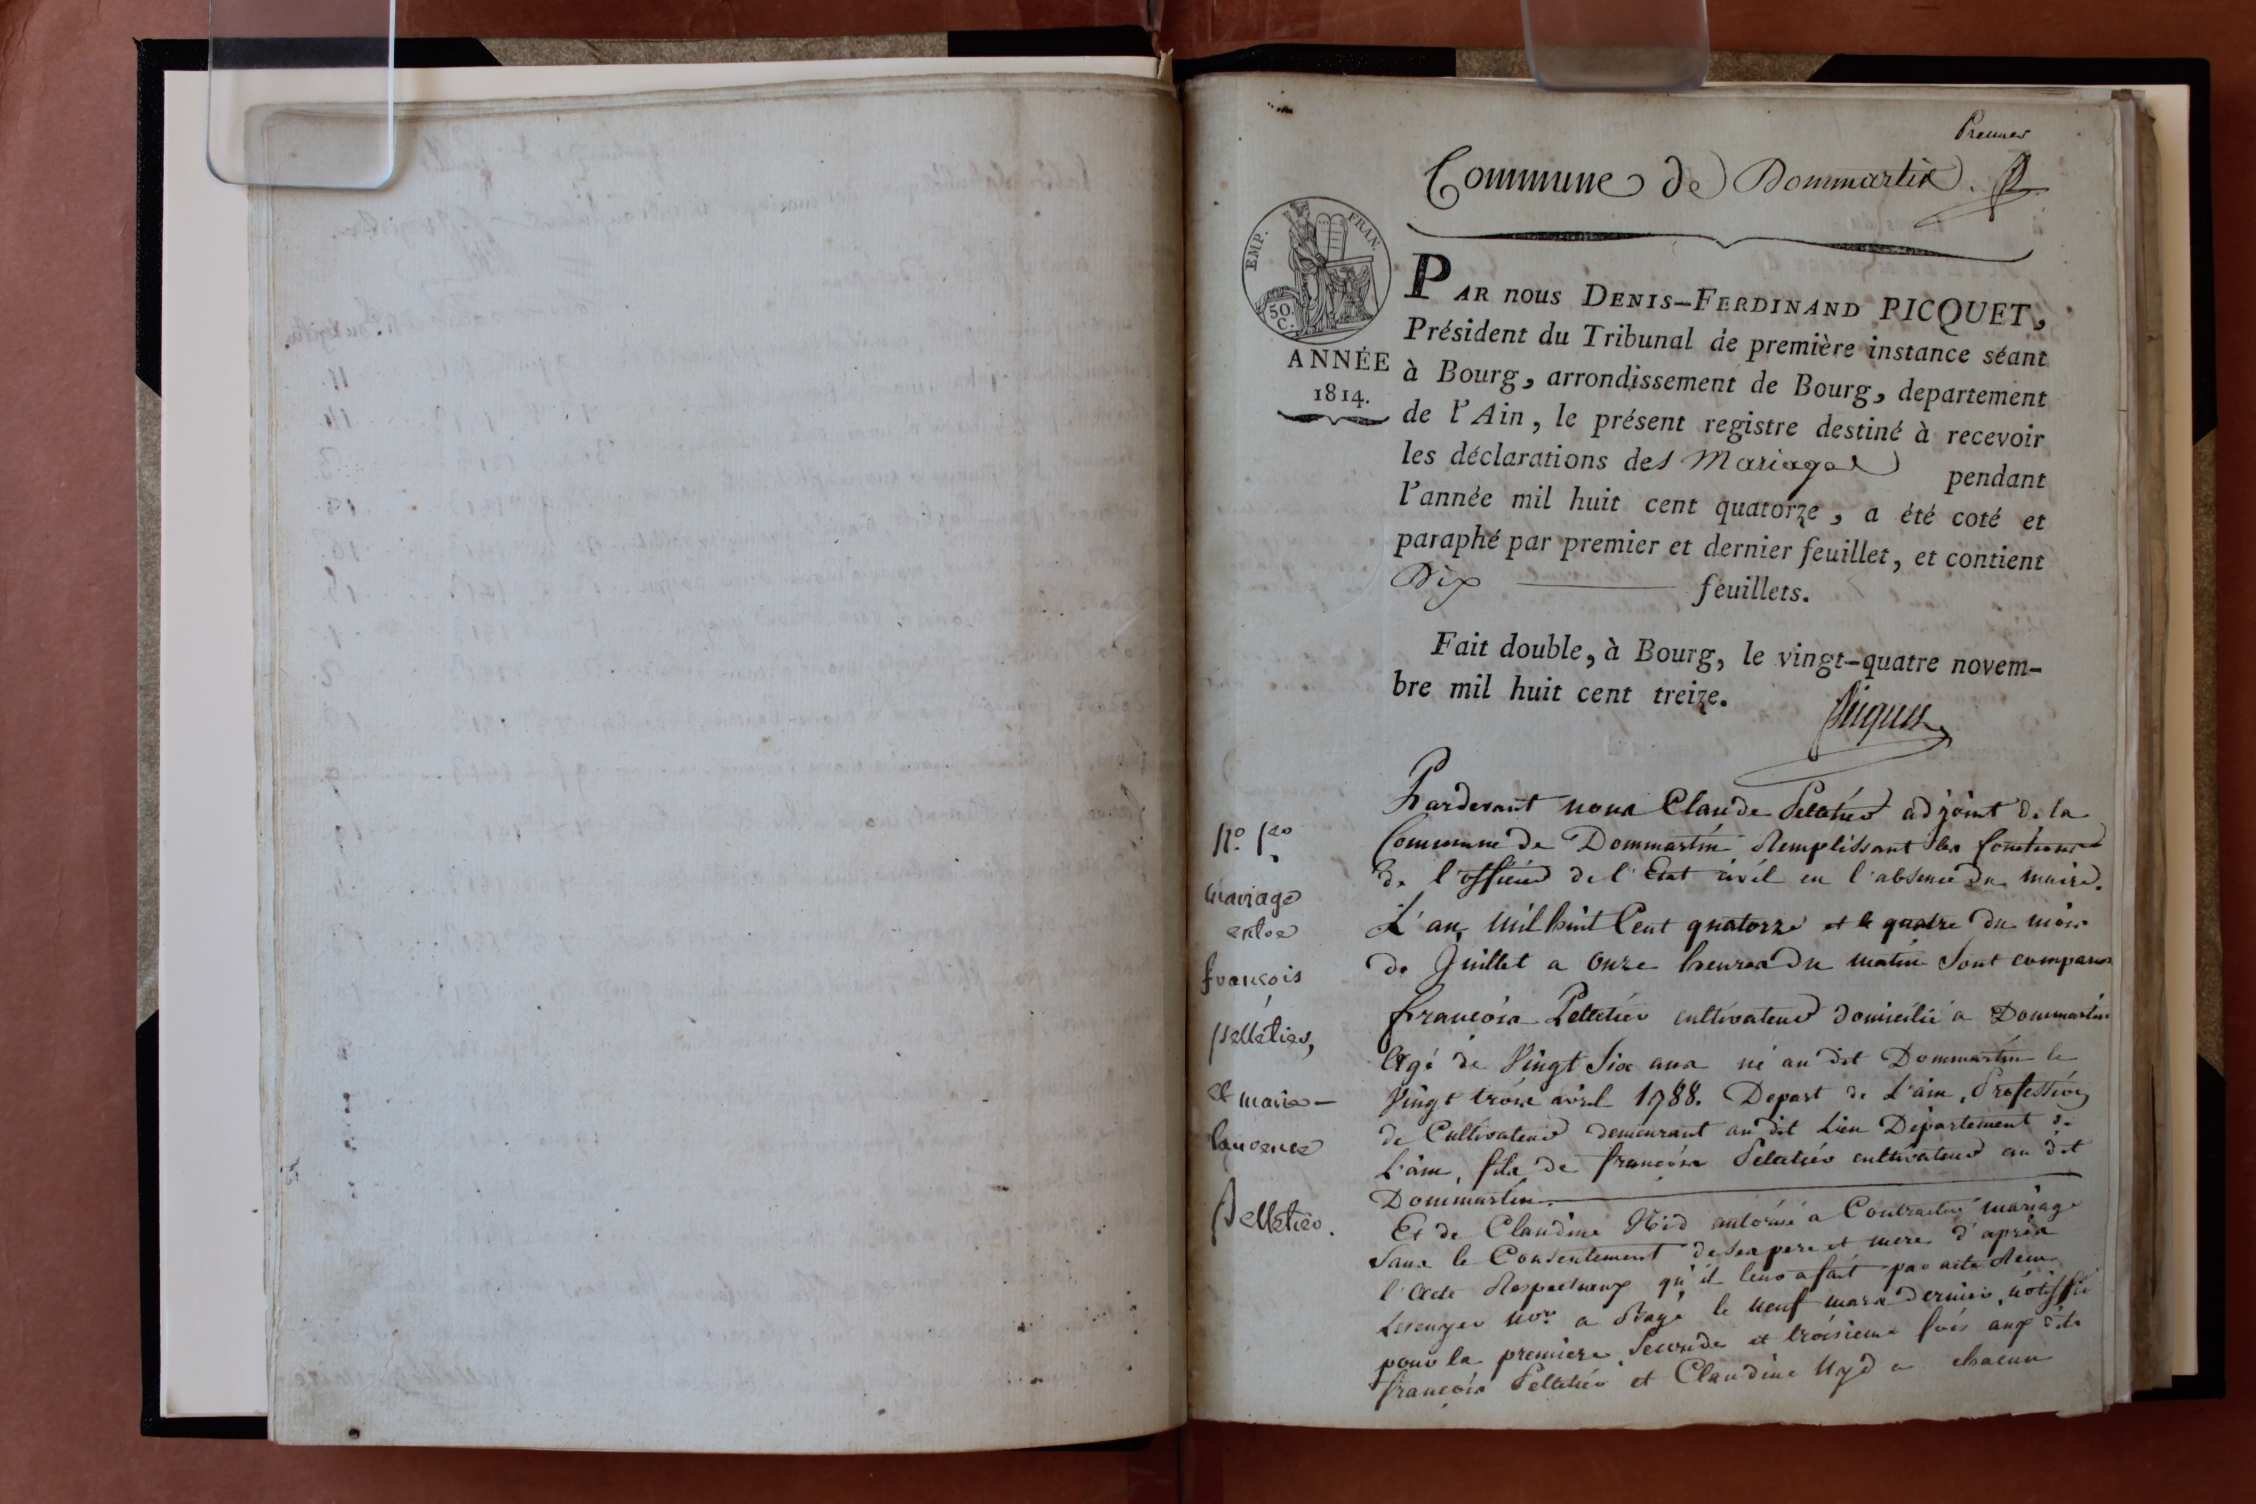 Premier
Commune de Dommartin.
EMP. FRAN.
50.
C.
ANNÉE
1814.
PAR nous DENIS-FERDINAND PICQUET,
Président du Tribunal de première instance séant
à Bourg, arrondissement de Bourg, departement
de l'Ain, le présent registre destiné à recevoir
les déclarations des Mariages pendant
l'année mil huit cent quatorze, a été coté et
paraphé par premier et dernier feuillet, et contient
Dix feuillets.
Fait double, à Bourg, le vingt-quatre novem-
bre mil huit cent treize.
Picquet
N.o 1.er
mariage
entre
françois
pelletier,
et marie-
laurence
Pelletier.
Pardevant nous Claude Pelletier adjoint de la
Commune de Dommartin Remplissant les fonctions
de l'officier de l'Etat civil en l'absence du maire.
L'an mil huit Cent quatorze et le quatre du mois
de Juillet a onze heures du matin Sont comparus
françois Pelletier cultivateur domicilié a Dommartin
Agé de Vingt Six ans né au dit Dommartin le
Vingt trois avril 1788. Depart de L'ain, Profession
de Cultivateur demeurant au dit Lieu Département de
L'ain, fils de françois Pelletier cultivateur au dit
Dommartin
Et de Claudine Nid autorisé a Contracter mariage
Sans le Consentement de ses pere et mere d'après
l'Acte Respectueux qu'il leur a fait par acte Reçu
no.re a Bagé le neuf mars dernier, notiffié
pour la premiere, Seconde et troisieme fois aux dits
françois Pelletier et Claudine Nyd a chacun